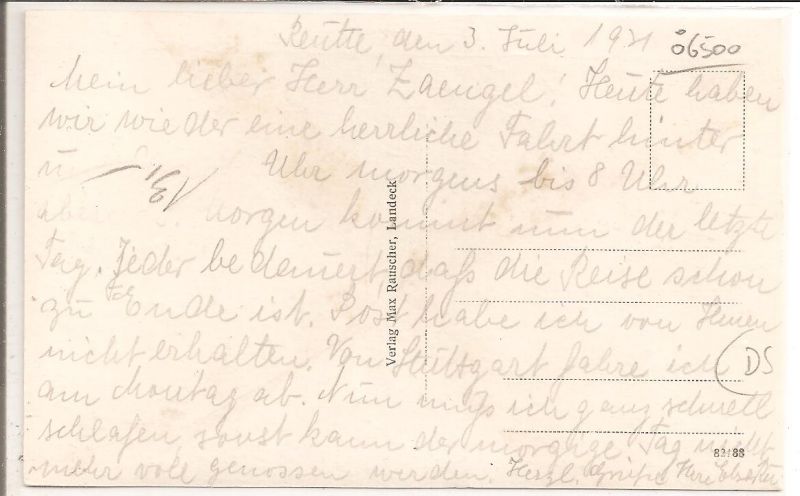 Reutte, den 3. Juli 1931
06500
Mein lieber Herr Zaengel! Heute haben
wir wieder eine herrliche Fahrt hinter
Uhr morgens bis 8 Uhr
morgen kommt nun der letzte
Tag. Jeder bedauert daß die Reise schon
zu Ende ist. Post habe ich von Ihnen
nicht erhalten. Von Stuttgart fahre ich
am Montag ab. Nun muß ich ganz schnell
schlafen, sonst kann der morgige Tag nicht
mehr voll genossen werden. Herzl. Grüße Ihre
Verlag Max Rauscher, Landeck
DS
82188